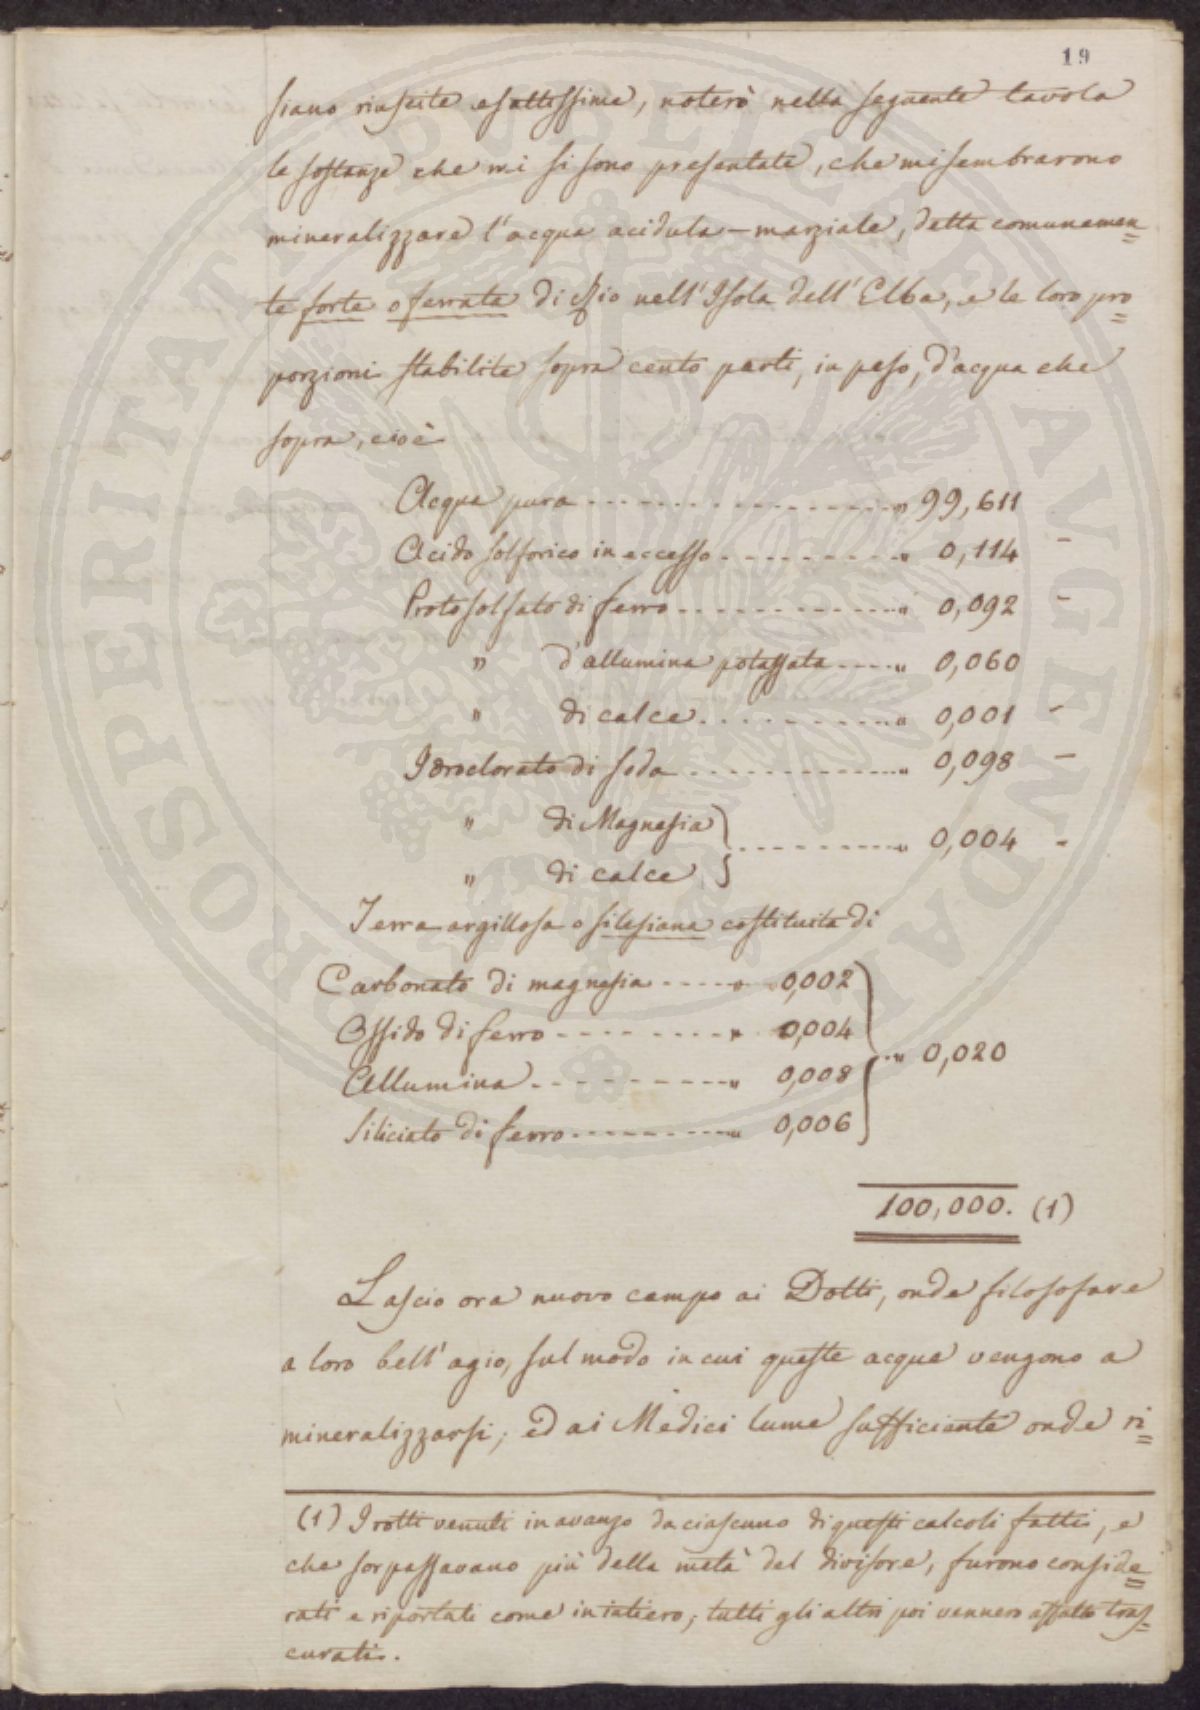 19
siano riuscite esattissime, noterò nella seguente tavola
le sostanze che mi si sono presentate, che mi sembrarono
mineralizzare l'acqua acidula-marziale, detta comunemen=
te forte o ferrata di Rio nell'Isola dell'Elba, e le loro pro=
porzioni stabilite sopra cento parti, in peso, d'acqua che
sopra, cioè
Acqua pura ---------- " 99,611
Acido solforico in eccesso ---------- " 0,114 -
Protosolfato di ferro ---------- " 0,092 -
" d'allumina potassata ----- " 0,060
" di calce ---------- " 0,001 -
Idroclorato di soda ---------- " 0,098 -
" di Magnesia
" di calce } ---------- " 0,004 -
Terra argillosa o silesiana costituita di
Carbonato di magnesia ----- " 0,002
Ossido di ferro ---------- " 0,004
Allumina ---------- " 0,008
Siliciato di ferro ---------- " 0,006
} -- " 0,020
100,000. (1)
Lascio ora nuovo campo ai Dotti, onde filosofare
a loro bell'agio, sul modo in cui queste acque vengono a
mineralizzarsi; ed ai Medici lume sufficiente onde ri=
(1) I rotti venuti in avanzo da ciascuno di questi calcoli fatti, e
che sorpassavano più della metà del divisore, furono conside=
rati e riportati come in intiero; tutti gli altri poi vennero affatto tras=
curati.
PROSPERITATI PUBLICAE AVGENDAE